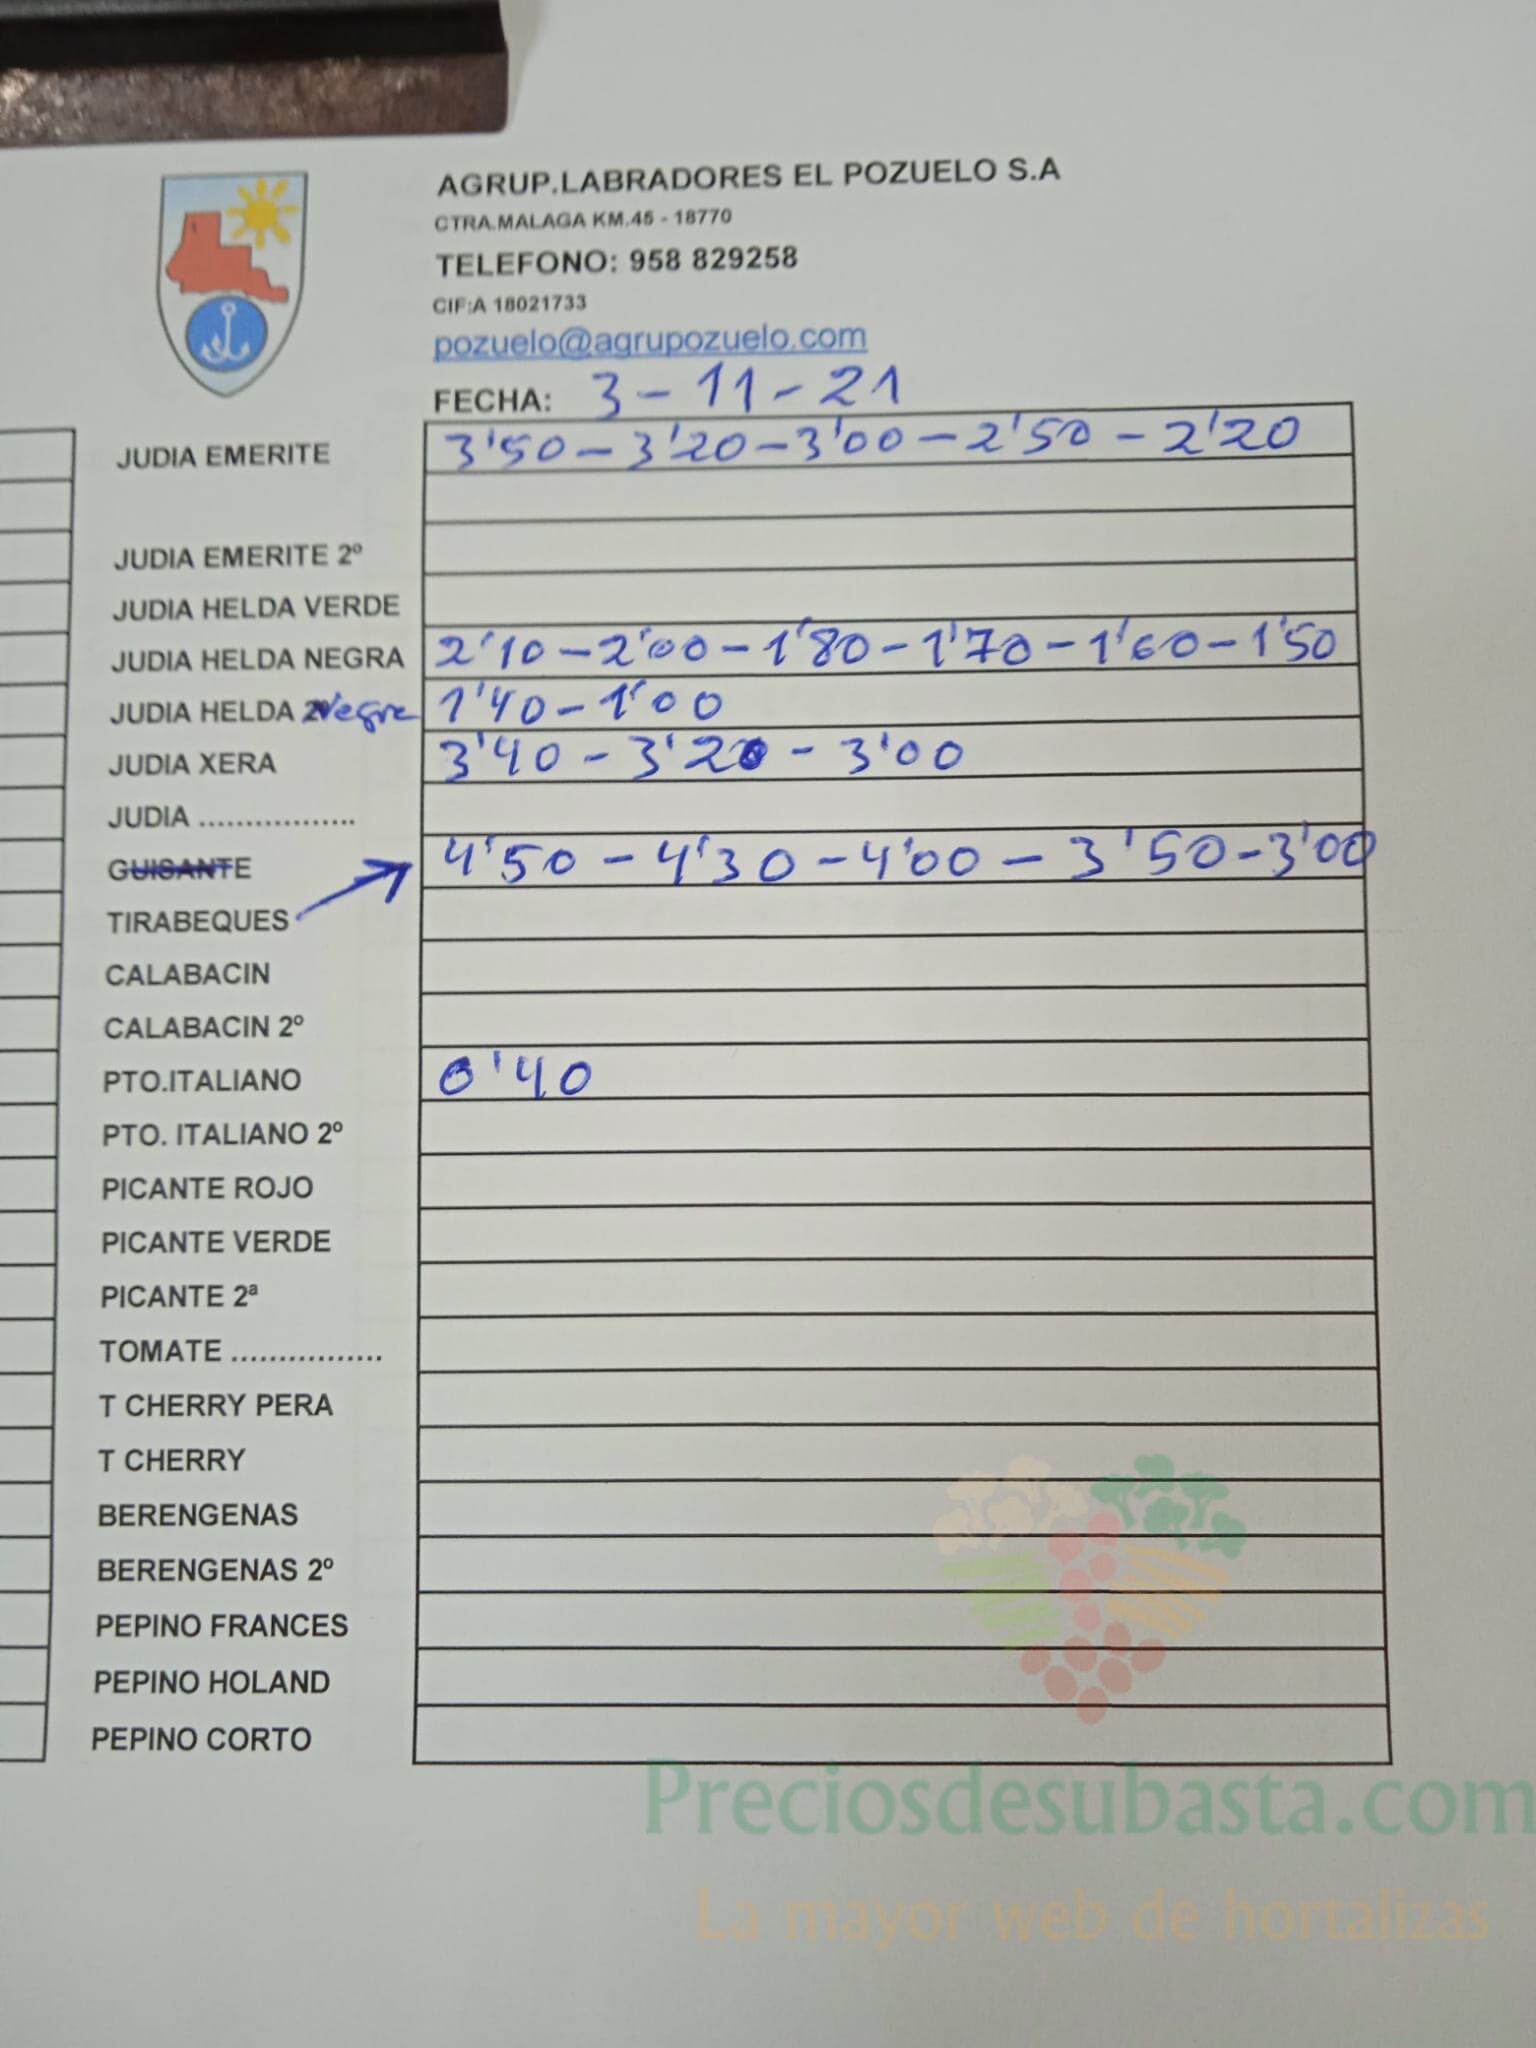 AGRUP.LABRADORES EL POZUELO S.A
CTRA.MALAGA KM.45 - 18770
TELEFONO: 958 829258
CIF:A 18021733
pozuelo@agrupozuelo.com
FECHA: 3-11-21
JUDIA EMERITE 3'50-3'20-3'00-2'50-2'20
JUDIA EMERITE 2º
JUDIA HELDA VERDE
JUDIA HELDA NEGRA 2'10-2'00-1'80-1'70-1'60-1'50
JUDIA HELDA Negra 1'40-1'00
JUDIA XERA 3'40-3'20-3'00
JUDIA .................
GUISANTE 4'50-4'30-4'00-3'50-3'00
TIRABEQUES
CALABACIN
CALABACIN 2º
PTO.ITALIANO 0'40
PTO. ITALIANO 2º
PICANTE ROJO
PICANTE VERDE
PICANTE 2ª
TOMATE ................
T CHERRY PERA
T CHERRY
BERENGENAS
BERENGENAS 2º
PEPINO FRANCES
PEPINO HOLAND
PEPINO CORTO
Preciosdesubasta.com
La mayor web de hortalizas